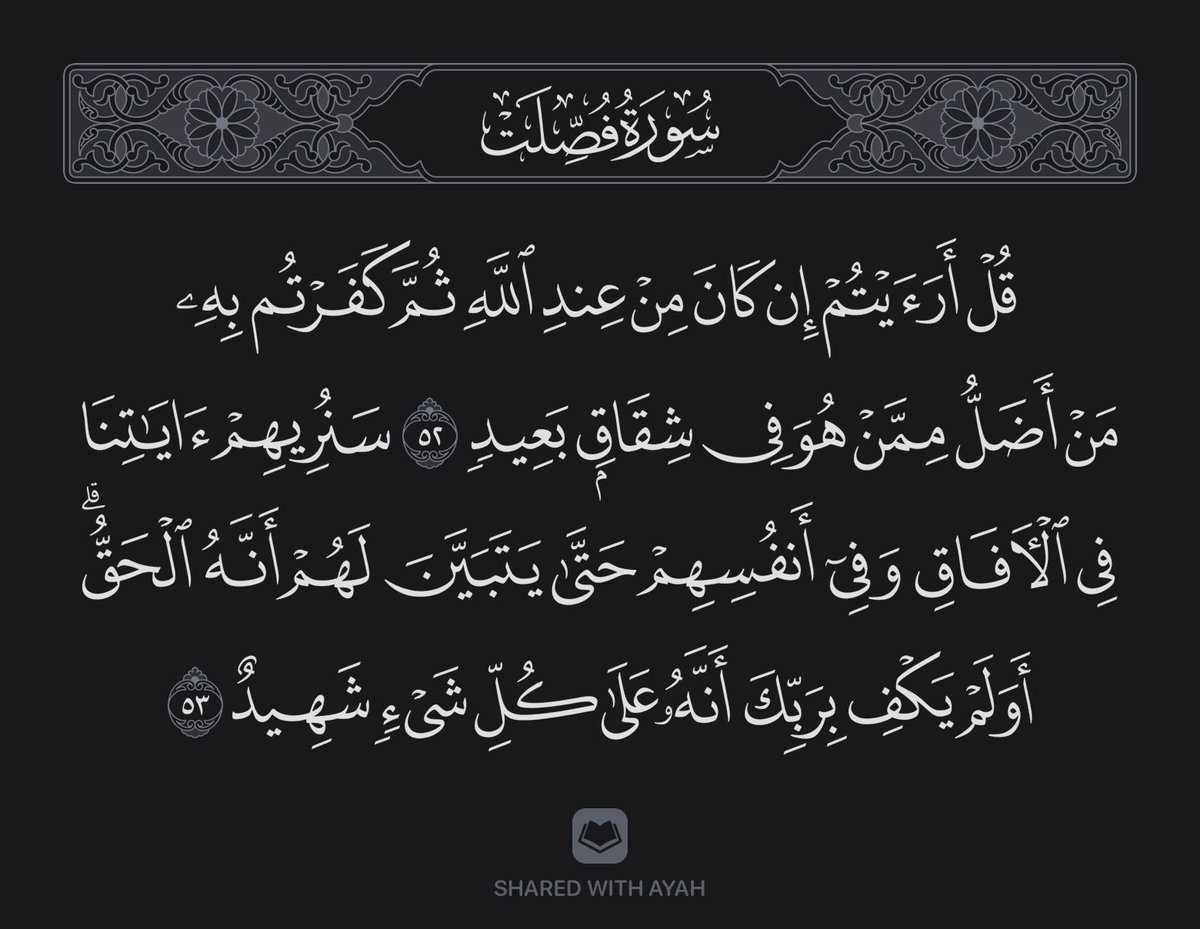 سُورَةُ فُصِّلَتْ
قُلْ أَرَءَيْتُمْ إِن كَانَ مِنْ عِندِ ٱللَّهِ ثُمَّ كَفَرْتُم بِهِۦ
مَنْ أَضَلُّ مِمَّنْ هُوَ فِى شِقَاقٍۭ بَعِيدٍ ٥٢ سَنُرِيهِمْ ءَايَٰتِنَا
فِى ٱلْـَٔافَاقِ وَفِىٓ أَنفُسِهِمْ حَتَّىٰ يَتَبَيَّنَ لَهُمْ أَنَّهُ ٱلْحَقُّ ۗ
أَوَلَمْ يَكْفِ بِرَبِّكَ أَنَّهُۥ عَلَىٰ كُلِّ شَىْءٍ شَهِيدٌ ٥٣
SHARED WITH AYAH